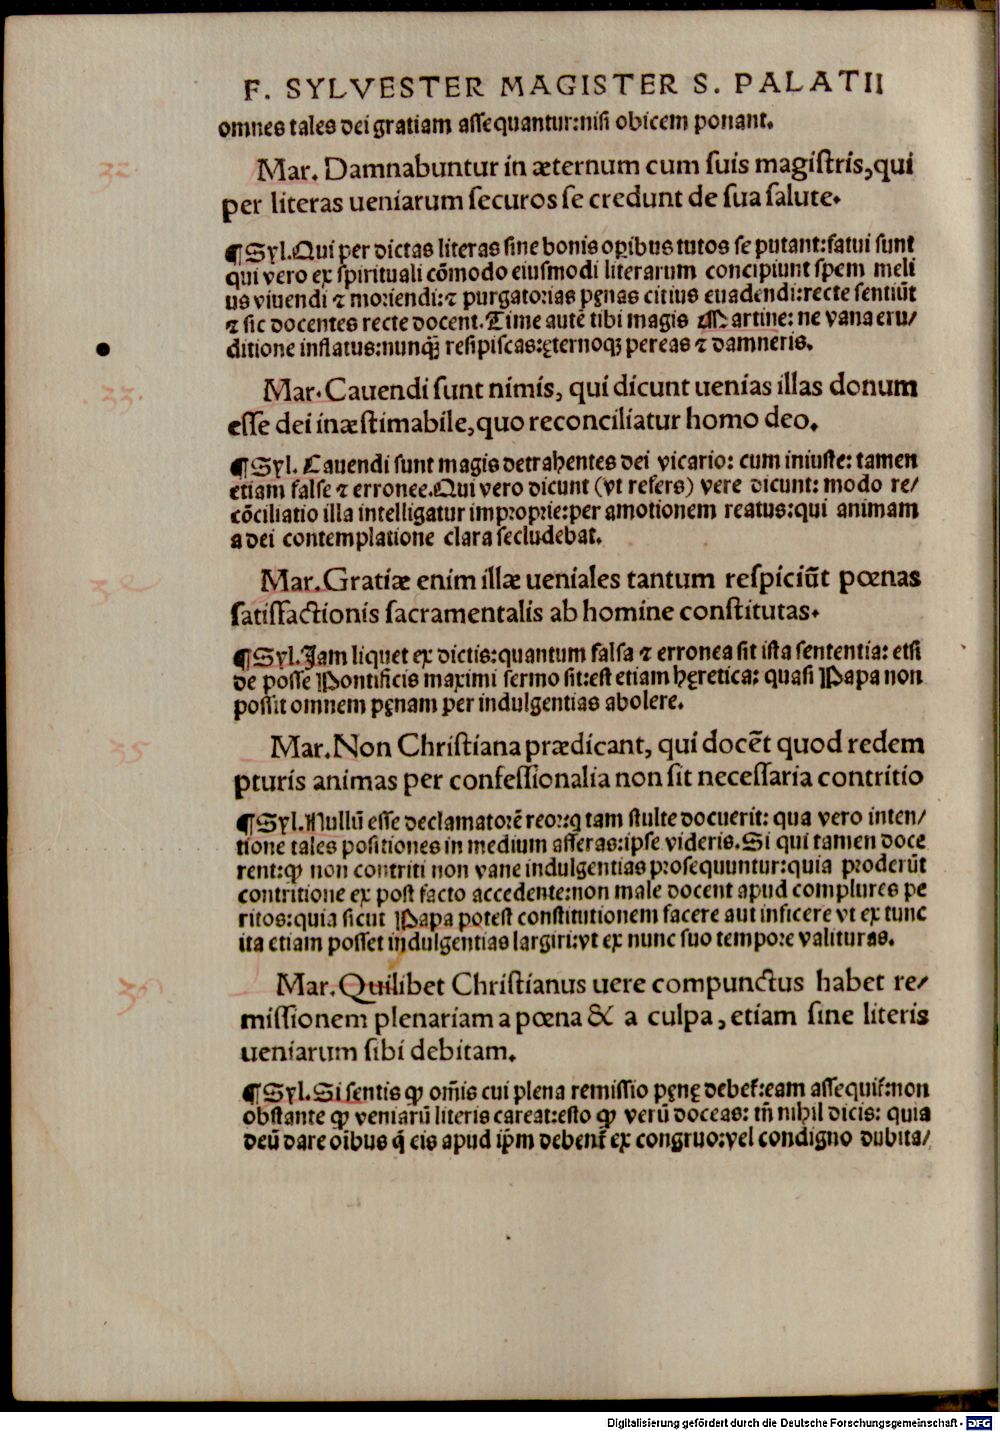 F. SYLVESTER MAGISTER S. PALATII
omnes tales dei gratiam assequantur:nisi obicem ponant.
32
Mar. Damnabuntur in æternum cum suis magistris,qui
per literas ueniarum securos se credunt de sua salute.
¶Syl.Qui per dictas literas sine bonis oꝑibus tutos se putant:fatui sunt
qui vero ex spirituali cōmodo eiusmodi literarum concipiunt spem meli
us viuendi ⁊ moriendi:⁊ purgatorias pęnas citius euadendi:recte sentiūt
⁊ sic docentes recte docent.Time autē tibi magis Martine: ne vana eru/
ditione inflatus:nunqȝ resipiscas:ęternoqȝ pereas ⁊ damneris.
33.
Mar.Cauendi sunt nimis, qui dicunt uenias illas donum
esse dei inæstimabile,quo reconciliatur homo deo.
¶Syl. Cauendi sunt magis detrahentes dei vicario: cum iniuste: tamen
etiam false ⁊ erronee.Qui vero dicunt (vt refers) vere dicunt: modo re/
cōciliatio illa intelligatur improprie:per amotionem reatus:qui animam
a dei contemplatione clara secludebat.
Mar.Gratiæ enim illæ ueniales tantum respiciūt pœnas
satisfactionis sacramentalis ab homine constitutas.
¶Syl.Jam liquet ex dictis:quantum falsa ⁊ erronea sit ista sententia: etsi
de posse Pontificis maximi sermo sit:est etiam hęretica: quasi Papa non
possit omnem pęnam per indulgentias abolere.
35
Mar.Non Christiana prædicant, qui docēt quod redem
pturis animas per confessionalia non sit necessaria contritio
¶Syl.Nullū esse declamatorē reor:q tam stulte docuerit: qua vero inten/
tione tales positiones in medium afferas:ipse videris.Si qui tamen doce
rent:ꝙ non contriti non vane indulgentias prosequuntur:quia proderūt
contritione ex post facto accedente:non male docent apud complures pe
ritos:quia sicut Papa potest constitutionem facere aut inficere vt ex tunc
ita etiam posset indulgentias largiri:vt ex nunc suo tempore valituras.
Mar.Quilibet Christianus uere compunctus habet re/
missionem plenariam a pœna & a culpa,etiam sine literis
ueniarum sibi debitam.
¶Syl.Si sentis ꝙ om̄is cui plena remissio pęnę debet̄:eam assequit̄:non
obstante ꝙ veniarū literis careat:esto ꝙ verū doceas: tn̄ nihil dicis: quia
deū dare oībus q̄ eis apud ip̄m debent̄ ex congruo:vel condigno dubita/
Digitalisierung gefördert durch die Deutsche Forschungsgemeinschaft - DFG